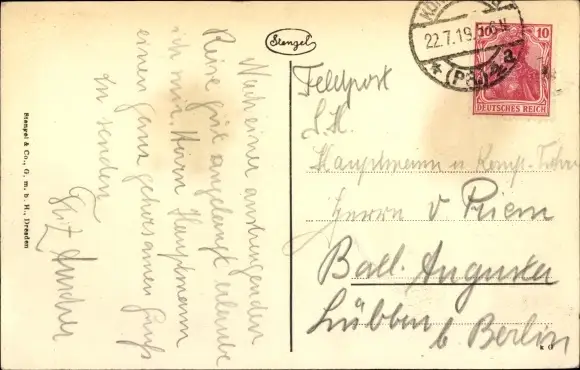 Nach einer anstrengenden
Reise gut angelangt erlaube
ich mir, Herrn Hauptmann
einen ganz gehorsamen Gruß
zu senden
Fritz
Stengel
Stengel & Co., G. m. b. H., Dresden
22.7.19. 5-6 N
10
DEUTSCHES REICH
Feldpost
S.H.
Hauptmann u Komp. Führer
Herrn v Priem
Batl. Augusta
Lübben b Berlin